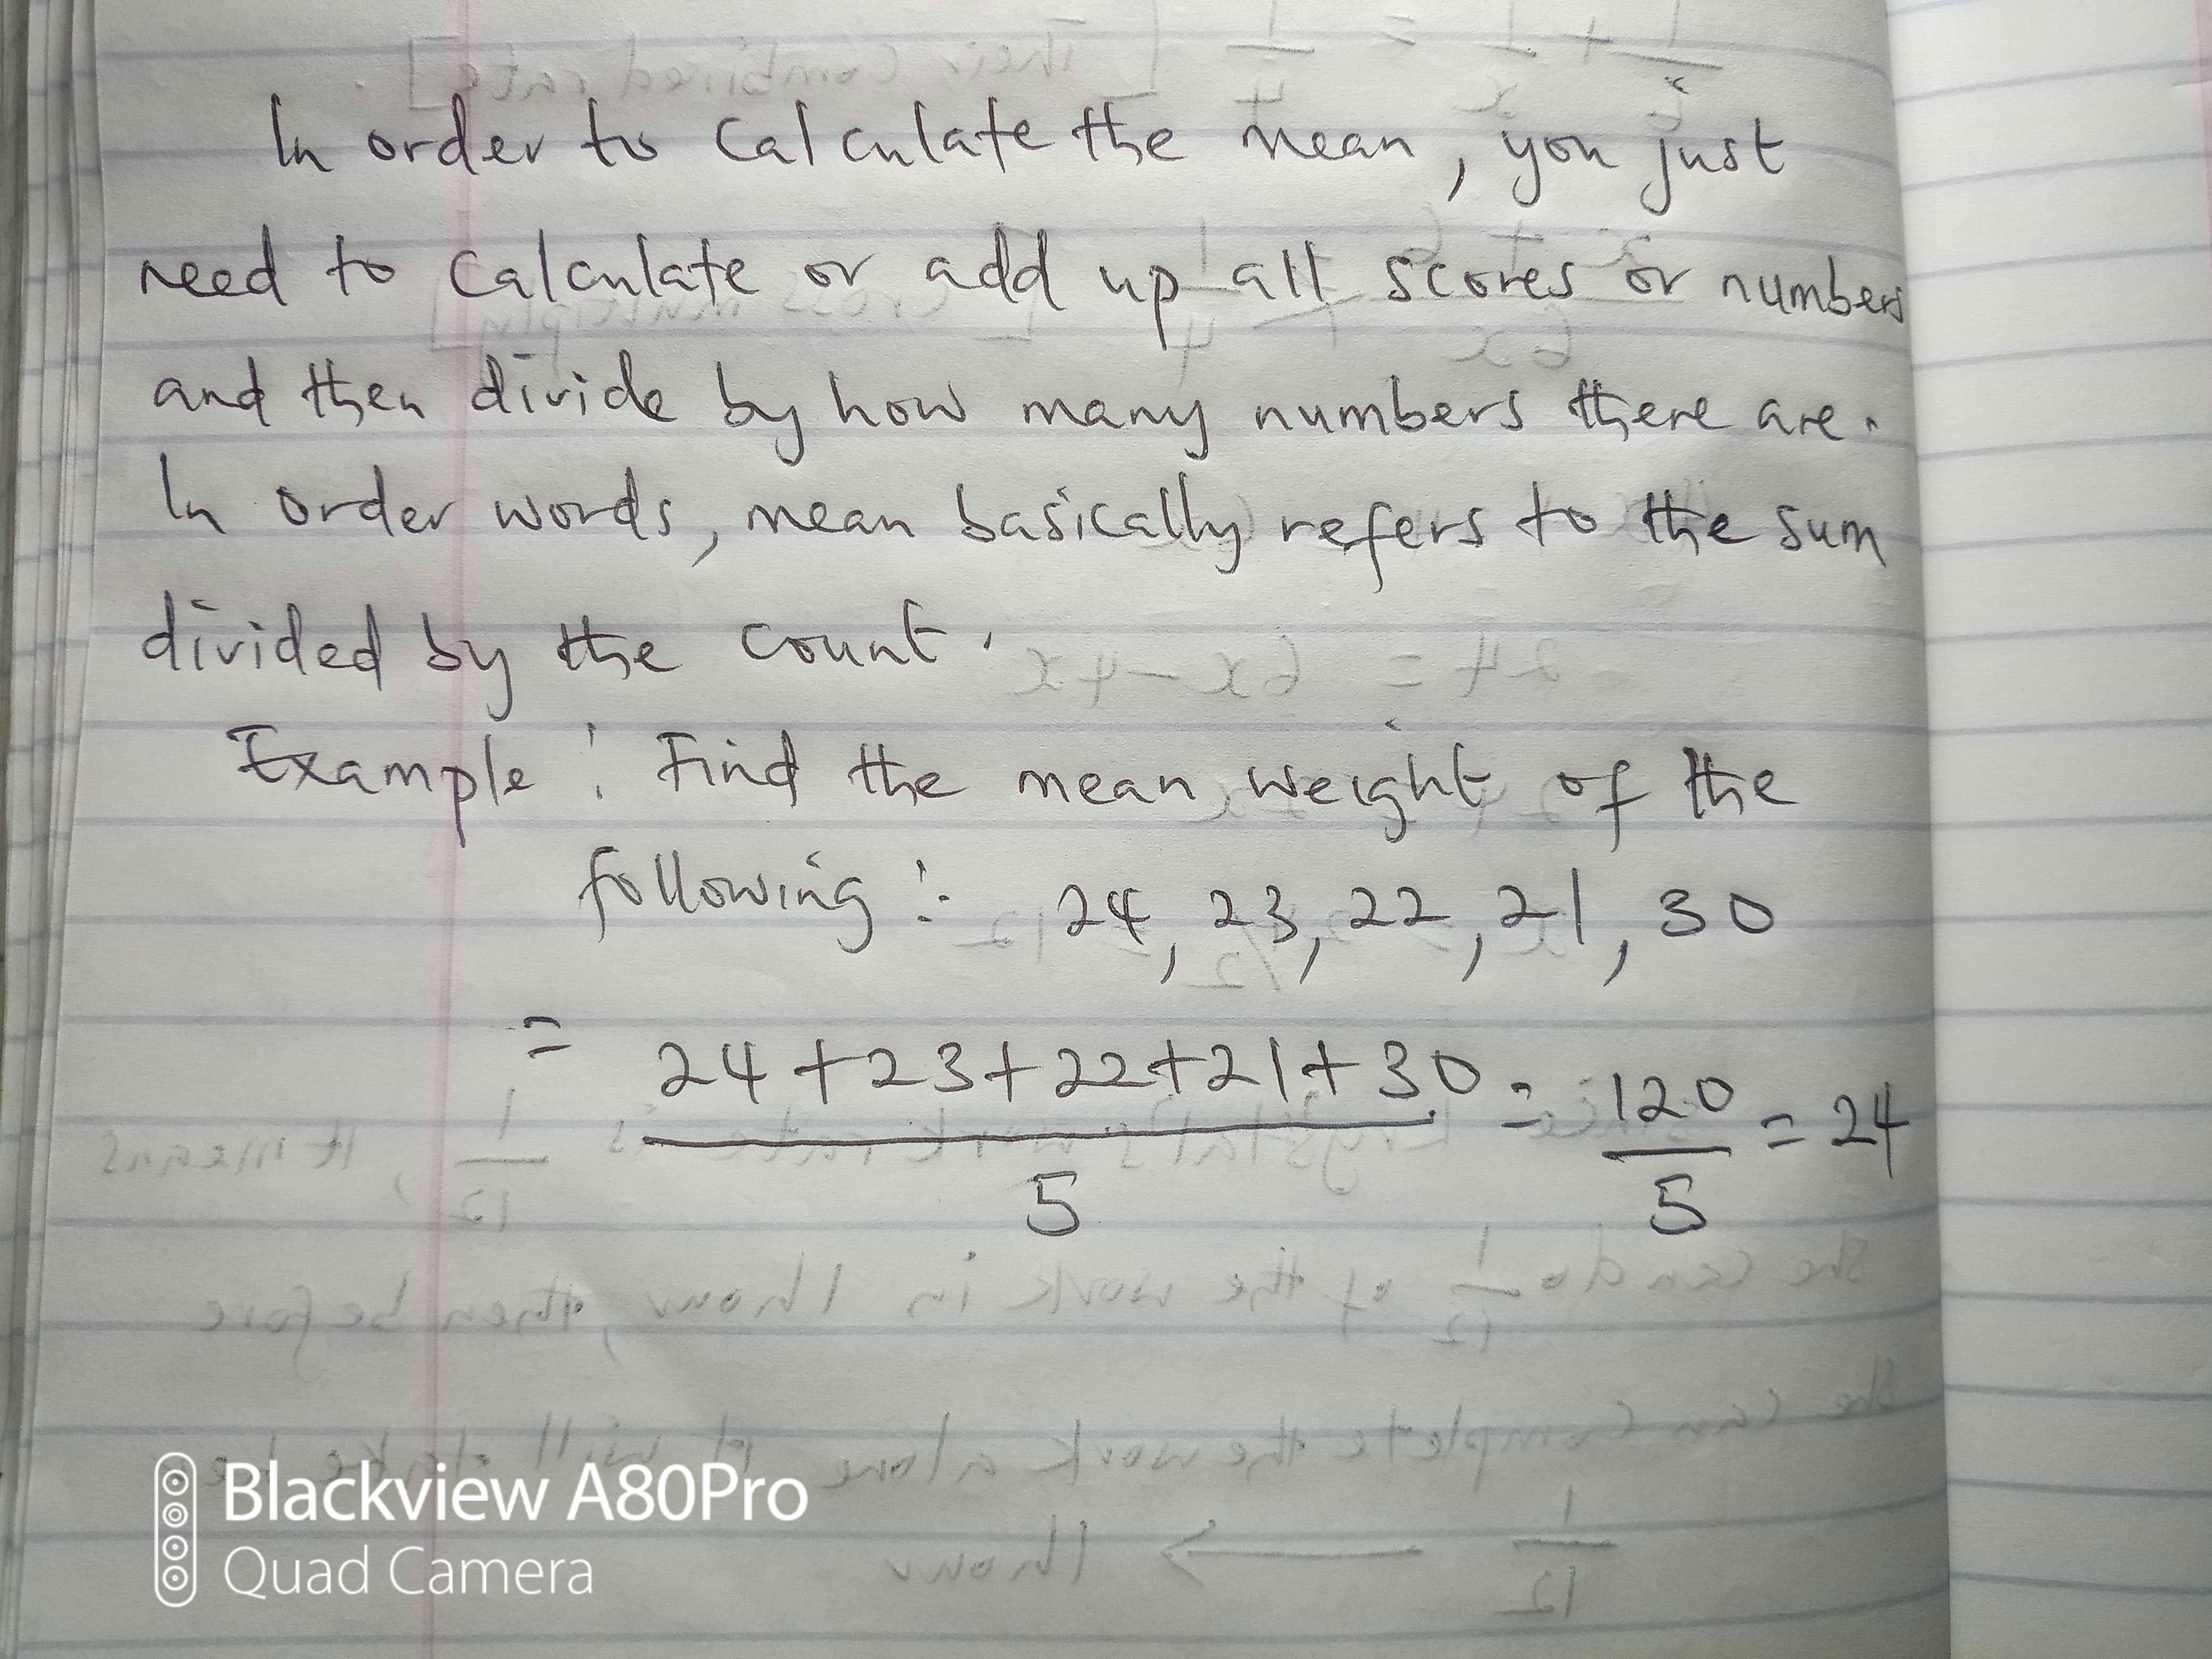 In order to Calculate the mean, you just
need to calculate or add up all scores or numbers
and then divide by how many numbers there are.
In order words, mean basically refers to the sum
divided by the count.
Example: Find the mean weight of the
following:- 24, 23, 22, 21, 30
= 24+23+22+21+30 = 120 = 24
5 5
Blackview A80Pro
Quad Camera